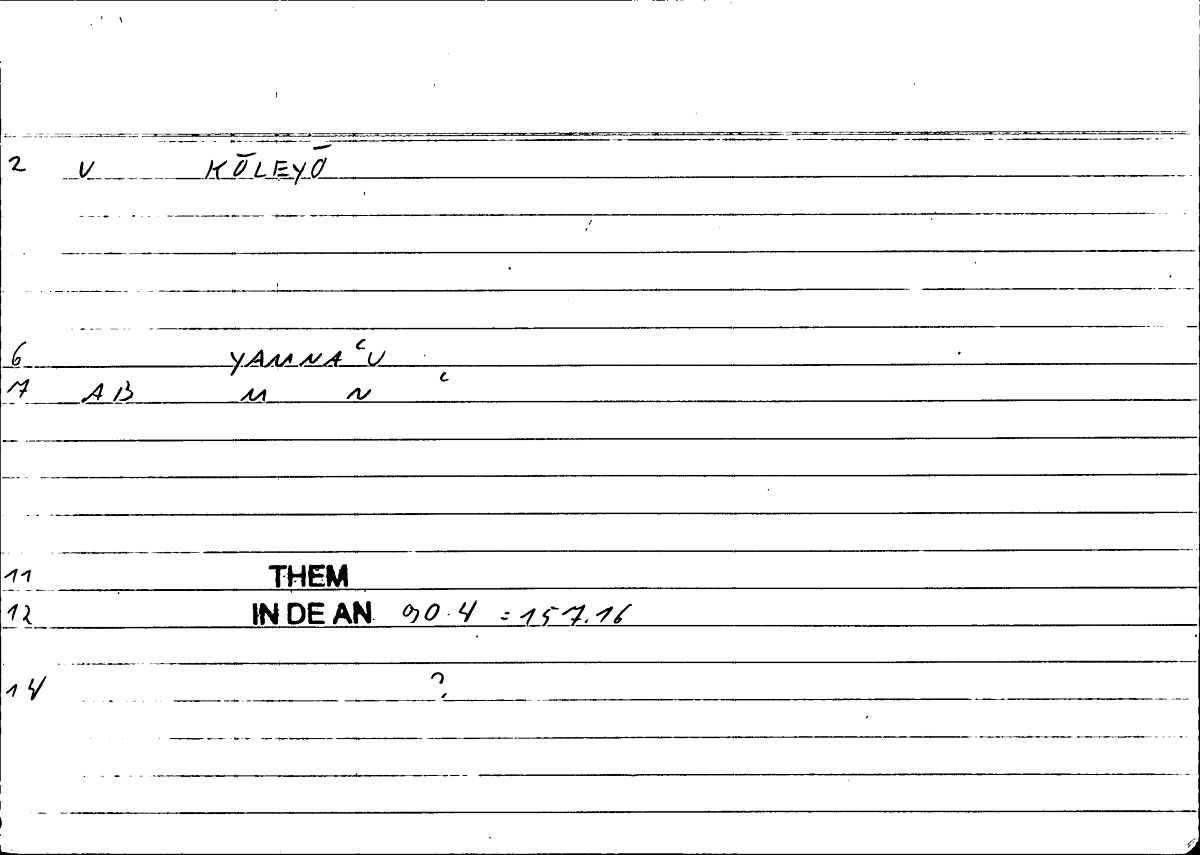 2 V KŌLEYŌ
6 YAMNAʿU
7 AB M N ʿ
11 THEM
12 IN DE AN 90.4 = 157.16
14 ?